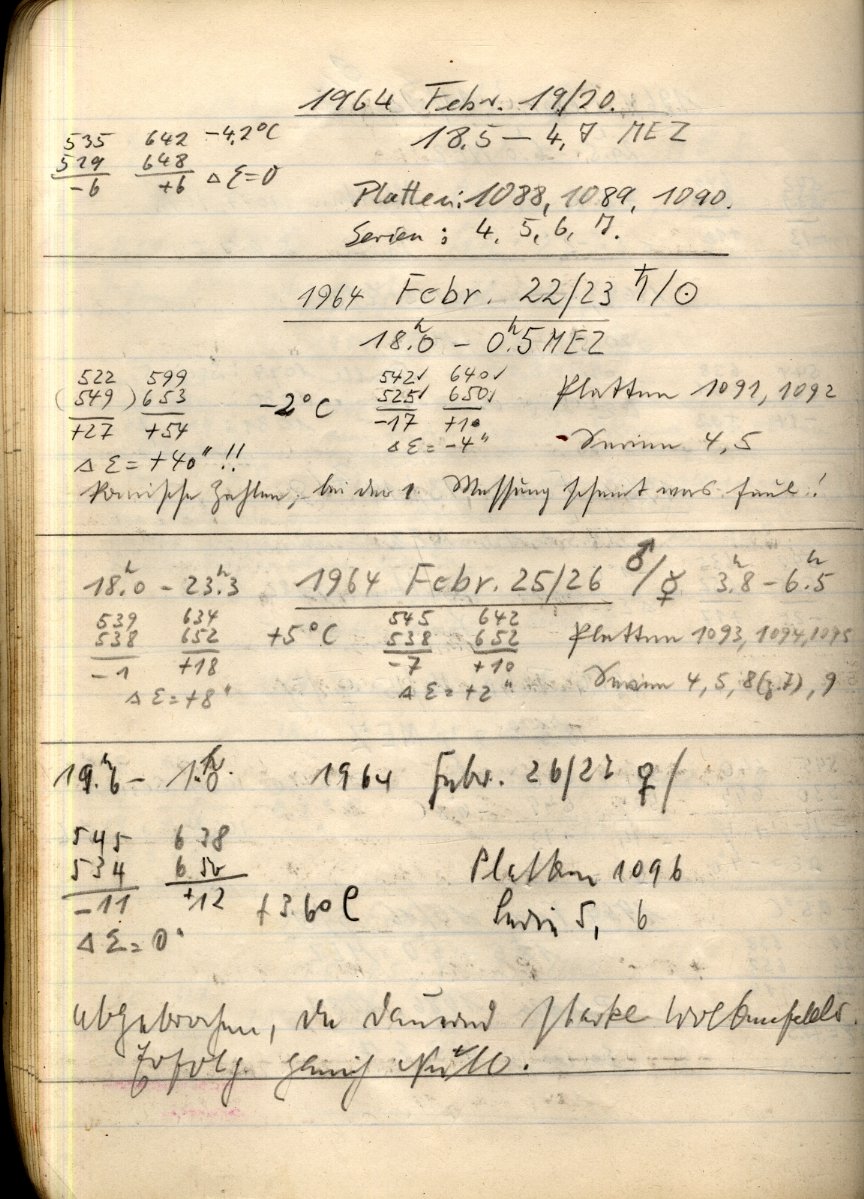 1964 Febr. 19/20.
535 642 -4,2°C 18,5 — 4,7 MEZ
529 648
-6 +6 Δ Σ=0
Platten: 1088, 1089, 1090.
Serien: 4, 5, 6, 7.
1964 Febr. 22/23 ♄/☉
18.ʰ0 - 0.ʰ5 MEZ
522 599 542 640
(549) 653 -2°C 525 650 Platten 1091, 1092
+27 +54 -17 +10
Δ Σ = +40" !! Δ Σ = -4" Serien 4, 5
Komische Zahlen, bei der 1. Messung scheint was faul!
18.ʰ0 - 23.ʰ3 1964 Febr. 25/26 ♂/☿ 3.ʰ8 - 6.ʰ5
539 634 545 642
538 652 +5°C 538 652 Platten 1093, 1094, 1095
-1 +18 -7 +10
Δ Σ = +8" Δ Σ = +2" Serien 4, 5, 8(z.T), 9
19.ʰ6 - 1.ʰ0. 1964 Febr. 26/27 ☿/
545 638
534 650 Platten 1096
-11 +12 +3.6°C Serie 5, 6
Δ Σ = 0"
abgebrochen, da dauernd starke Wolkenfelder.
Erfolg gleich Null.